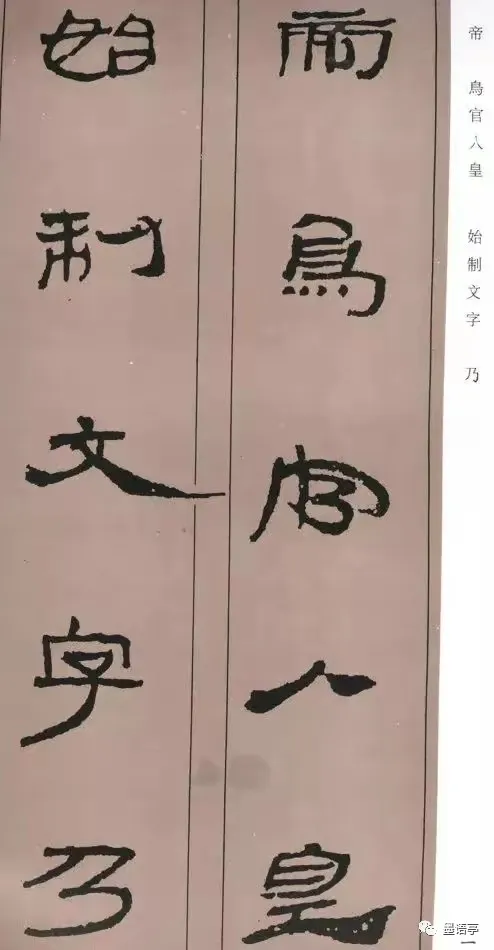 帝鳥官人皇
始制文字乃
帝 鳥官人皇 始制文字 乃
一
墨语亭